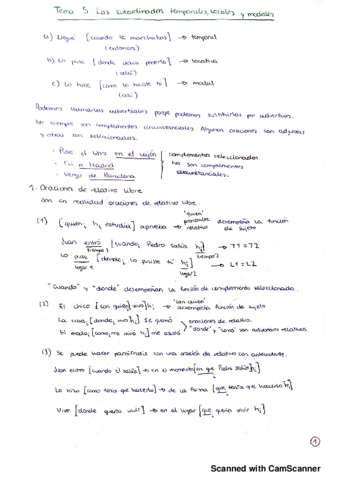 Tema 5: Las subordinadas temporales, locales y modales
a) Llegué [cuando te marchabas] → temporal
(entonces)
b) Lo puse [donde debía ponerlo] → locativa
(allí)
c) Lo hice [como lo hiciste tú] → modal
(así)
Podemos llamarlas adverbiales porque podemos sustituirlas por adverbios.
No siempre son complementos circunstanciales. Algunas oraciones son adjuntos
y otras son seleccionadas.
- Puse el libro en el cajón
- Fui a Madrid
- Vengo de Barcelona
complementos seleccionados.
No son complementos
circunstanciales.
1. Oraciones de relativo libre
Son en realidad oraciones de relativo libre.
(1) [quien, hi estudia] aprueba → "quien" pronombre relativo desempeña la función de sujeto
Juan entró [cuando, Pedro salía hi] → T1=T2
tiempo 1 tiempo 2
Lo puse [donde, lo pusiste tú hi] → L1=L2
lugar 1 lugar 2
"Cuando" y "donde" desempeñan la función de complemento seleccionado.
(2) El chico [con quien vivo] hi → "con quien"
La casa, [donde, vivo hi] se quemó
El modo, [como, me miró hi] me asustó
oraciones de relativo.
"donde" y "como" son adverbios relativos.
(3) Se puede hacer paráfrasis con una oración de relativo con antecedente.
Juan entró [cuando él salía] → en el momento [en que Pedro salía hi]
Lo hizo [como tenía que hacerlo] → de la forma [que tenía que hacerlo hi]
Vive [donde quería vivir] → en el lugar [que quería vivir hi]
1
Scanned with CamScanner